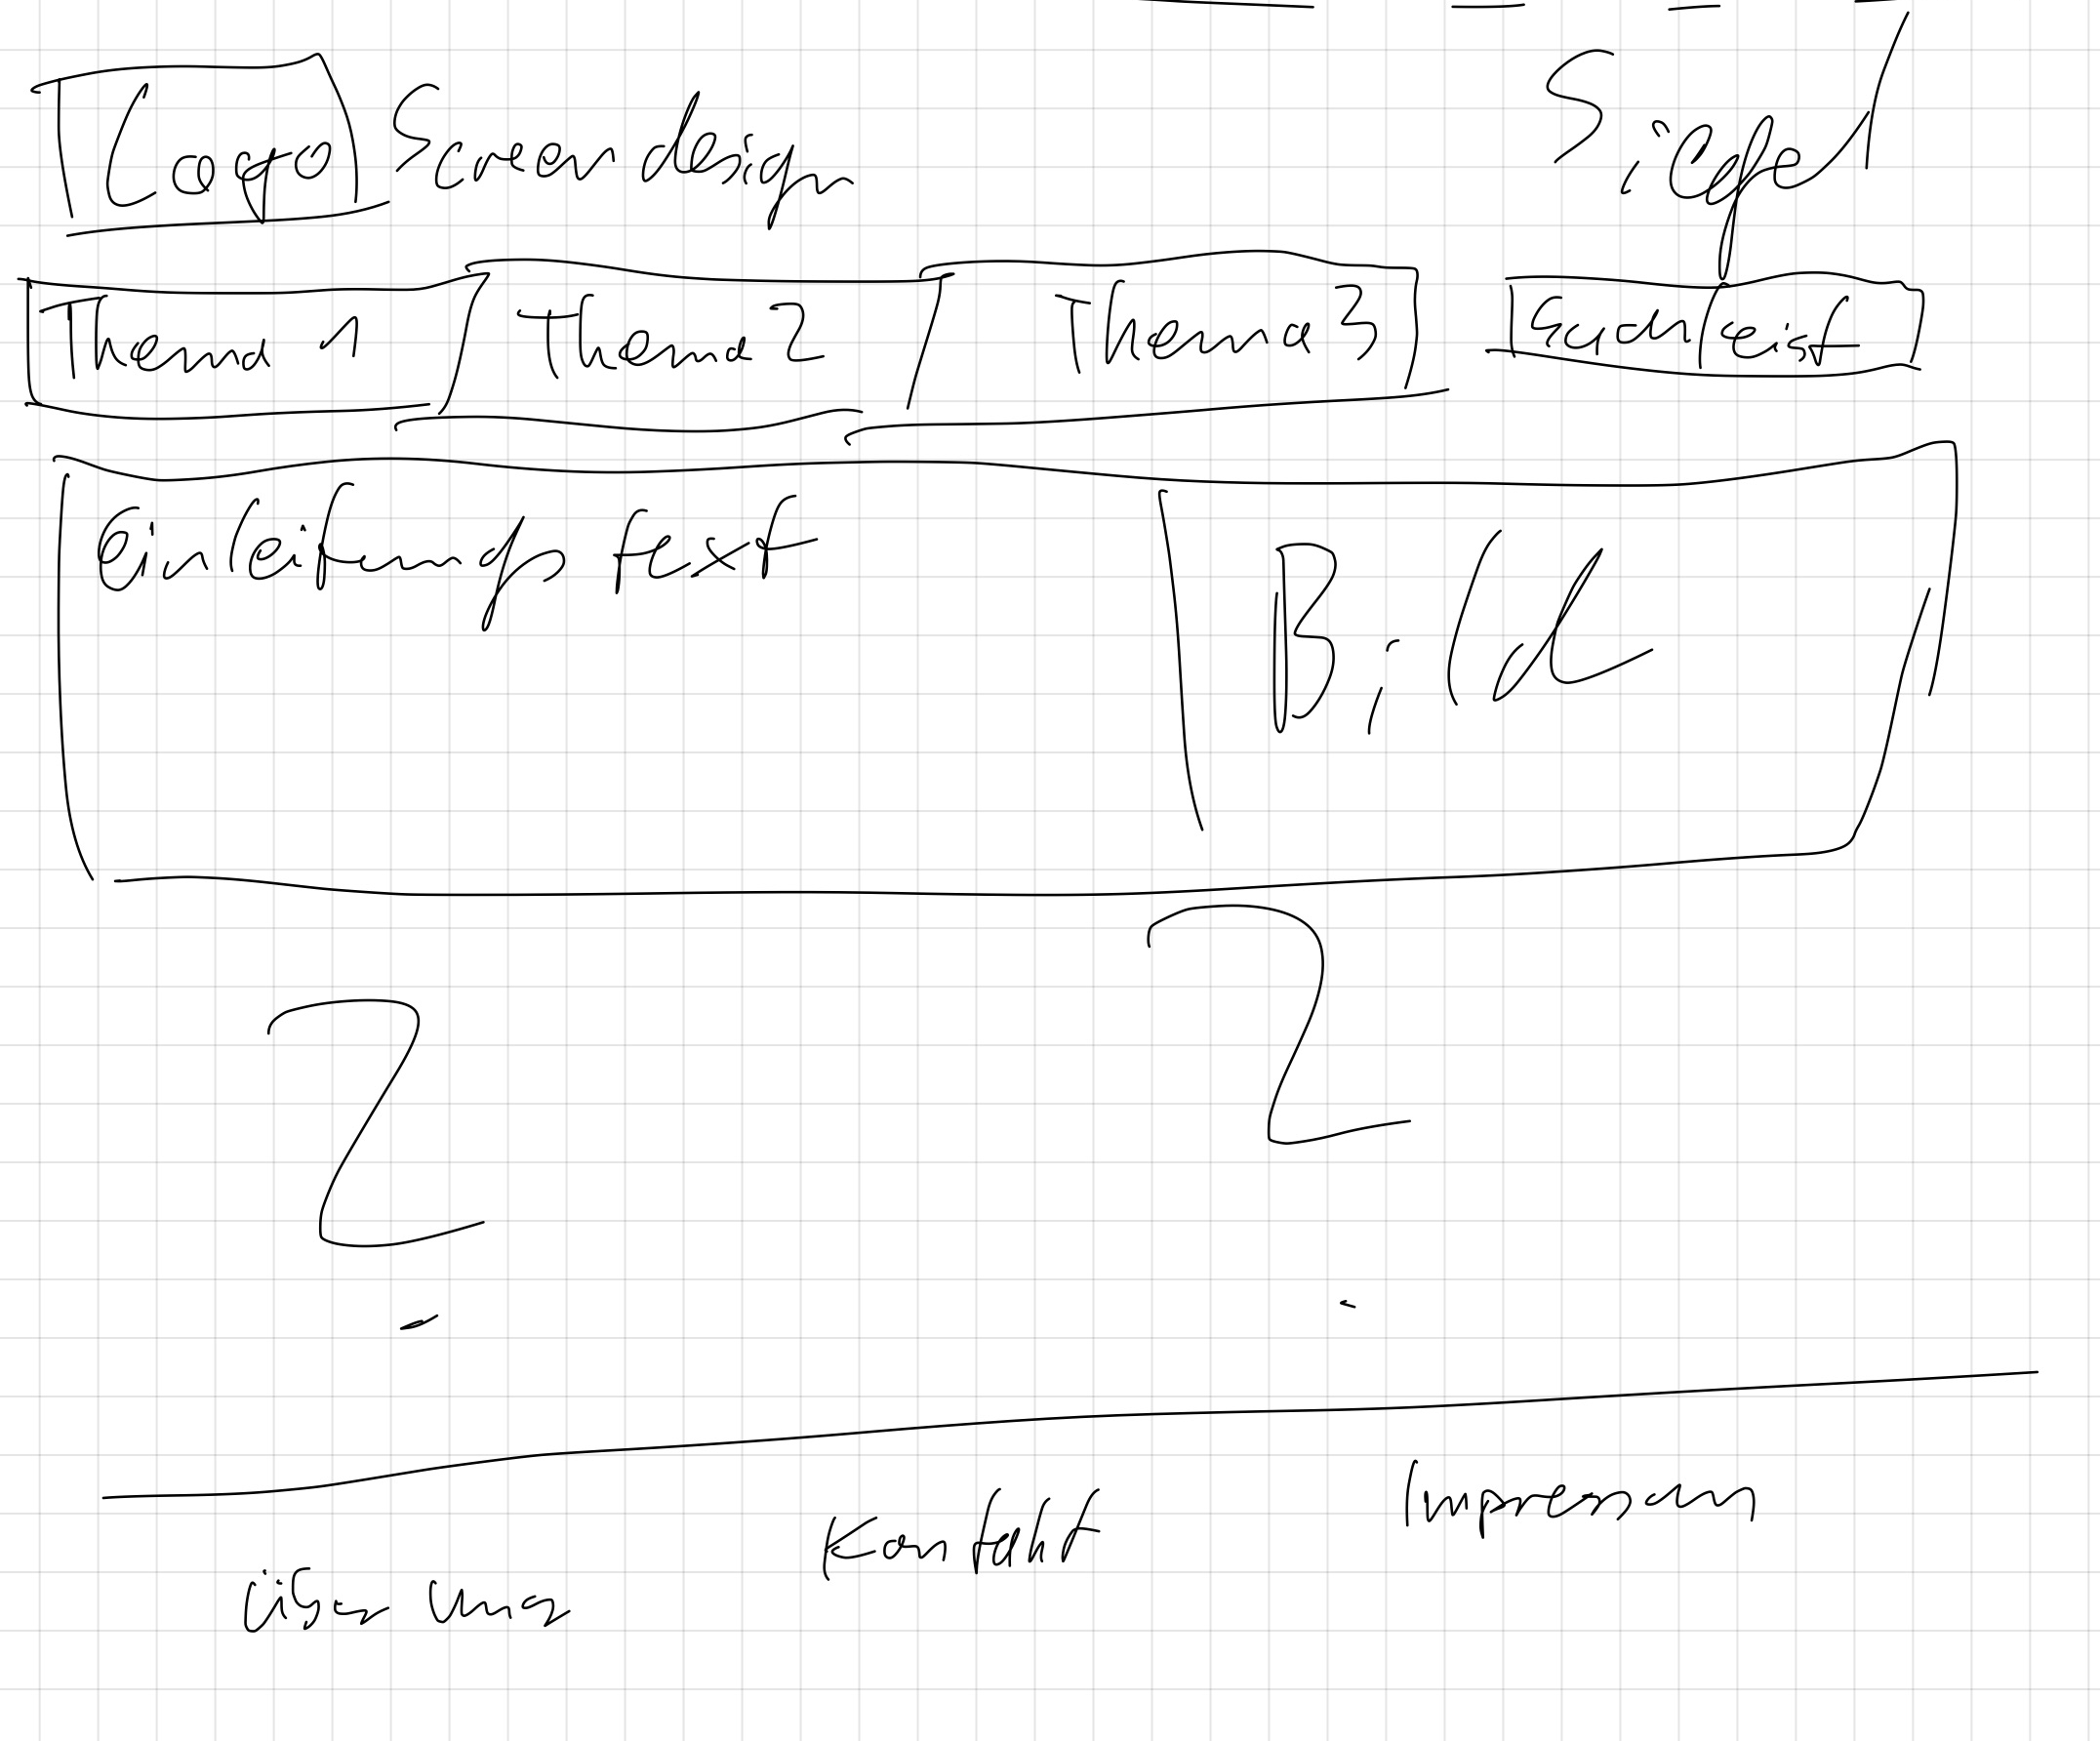 Logo Screen design Siegel
Thema 1 Thema 2 Thema 3 Suchleist
Einleitungs text Bild
?
?
Über uns Kontakt Impressum